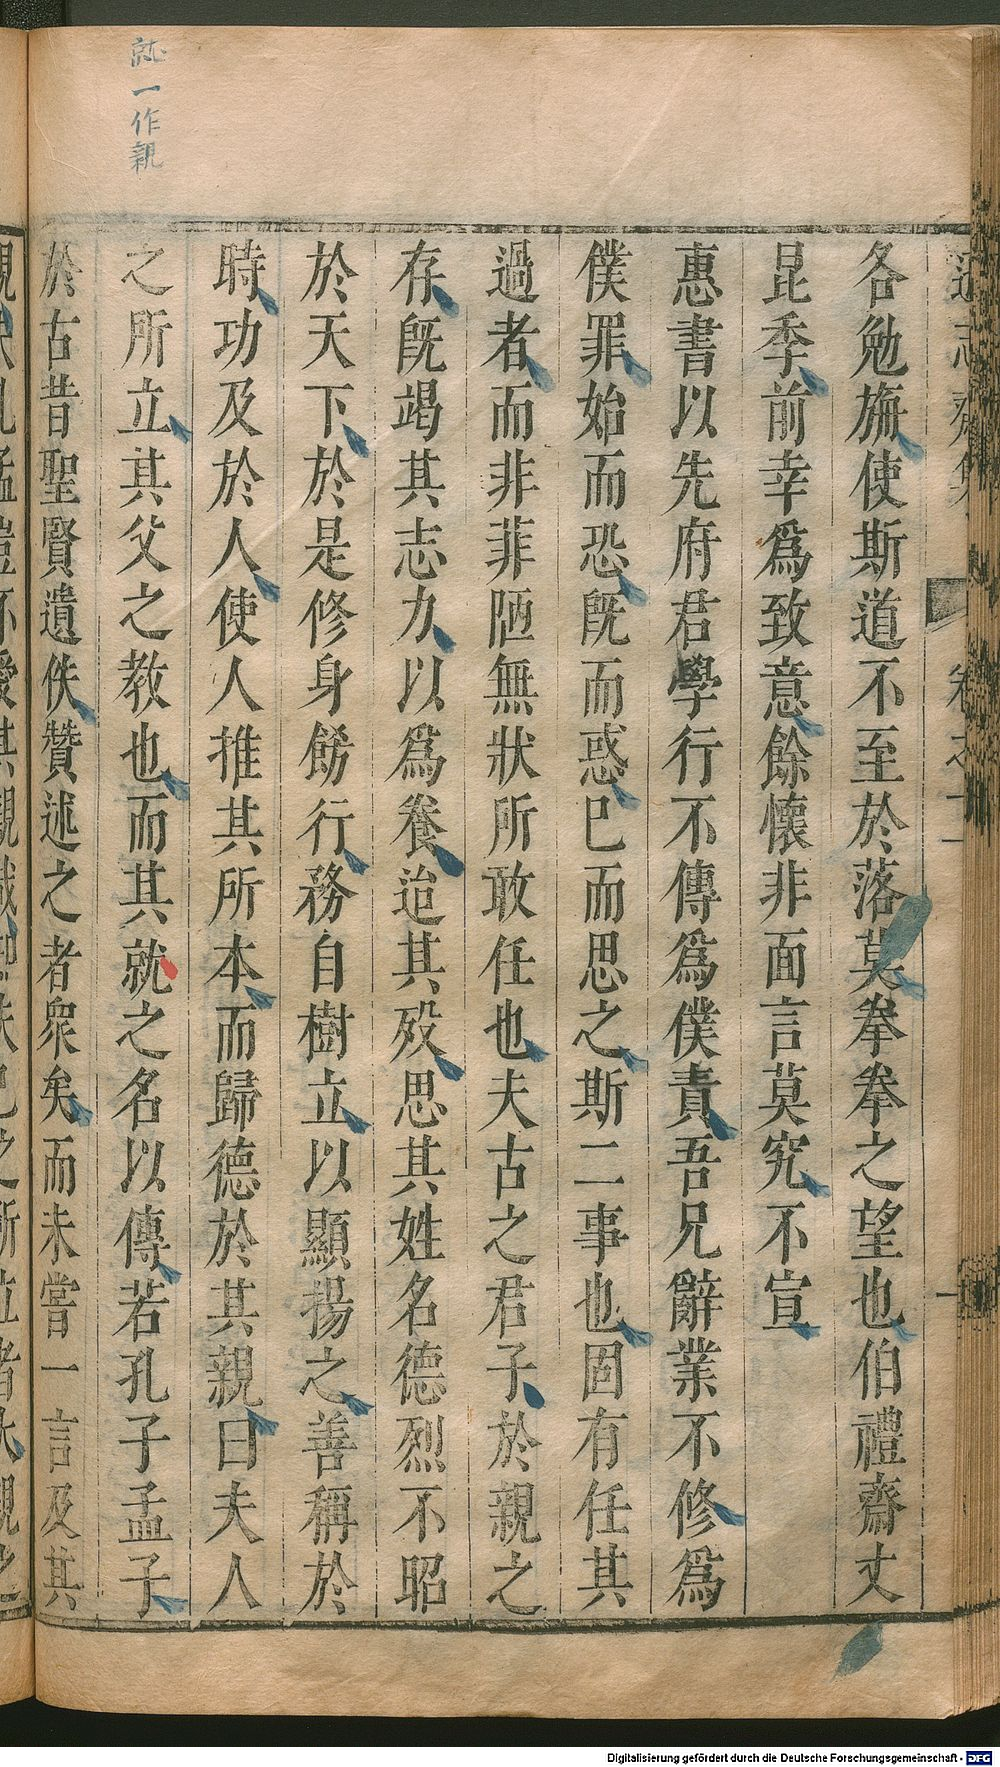 就一作親
各勉旃使斯道不至於落莫拳拳之望也伯禮齋丈
昆季前幸爲致意餘懷非面言莫究不宣
惠書以先府君學行不傳爲僕責吾兄辭業不修爲
僕罪始而恐旣而惑已而思之斯二事也固有任其
過者而非菲陋無狀所敢任也夫古之君子於親之
存旣竭其志力以爲養迨其歿思其姓名德烈不昭
於天下於是修身飭行務自樹立以顯揚之善稱於
時功及於人使人推其所本而歸德於其親曰夫人
之所立其父之教也而其就之名以傳若孔子孟子
於古昔聖賢遺佚贊述之者衆矣而未嘗一言及其
Digitalisierung gefördert durch die Deutsche Forschungsgemeinschaft - DFG